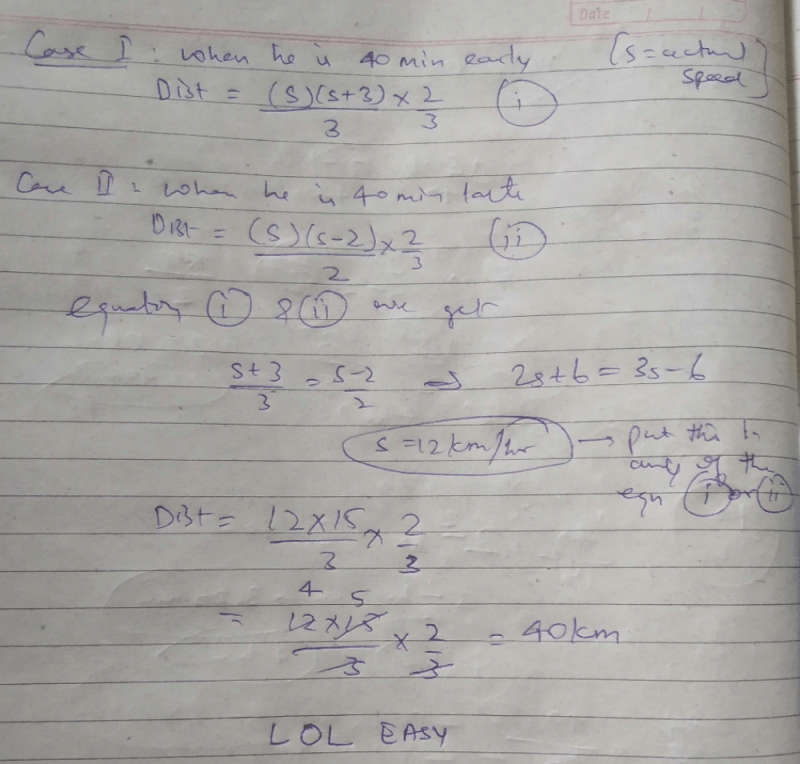 Date / /
Case I : when he is 40 min early [s = actual speed]
Dist = (S)(S+3)/3 × 2/3 (i)
Case II : when he is 40 min late
Dist = (S)(S-2)/2 × 2/3 (ii)
equating (i) & (ii) we get
S+3/3 = S-2/2 ⇒ 2s+6 = 3s-6
s = 12 km/hr → put this in
any of the
eqn (i) or (ii)
Dist = 12×15/3 × 2/3
4 5
= 12×15/3 × 2/3 = 40km
LOL EASY